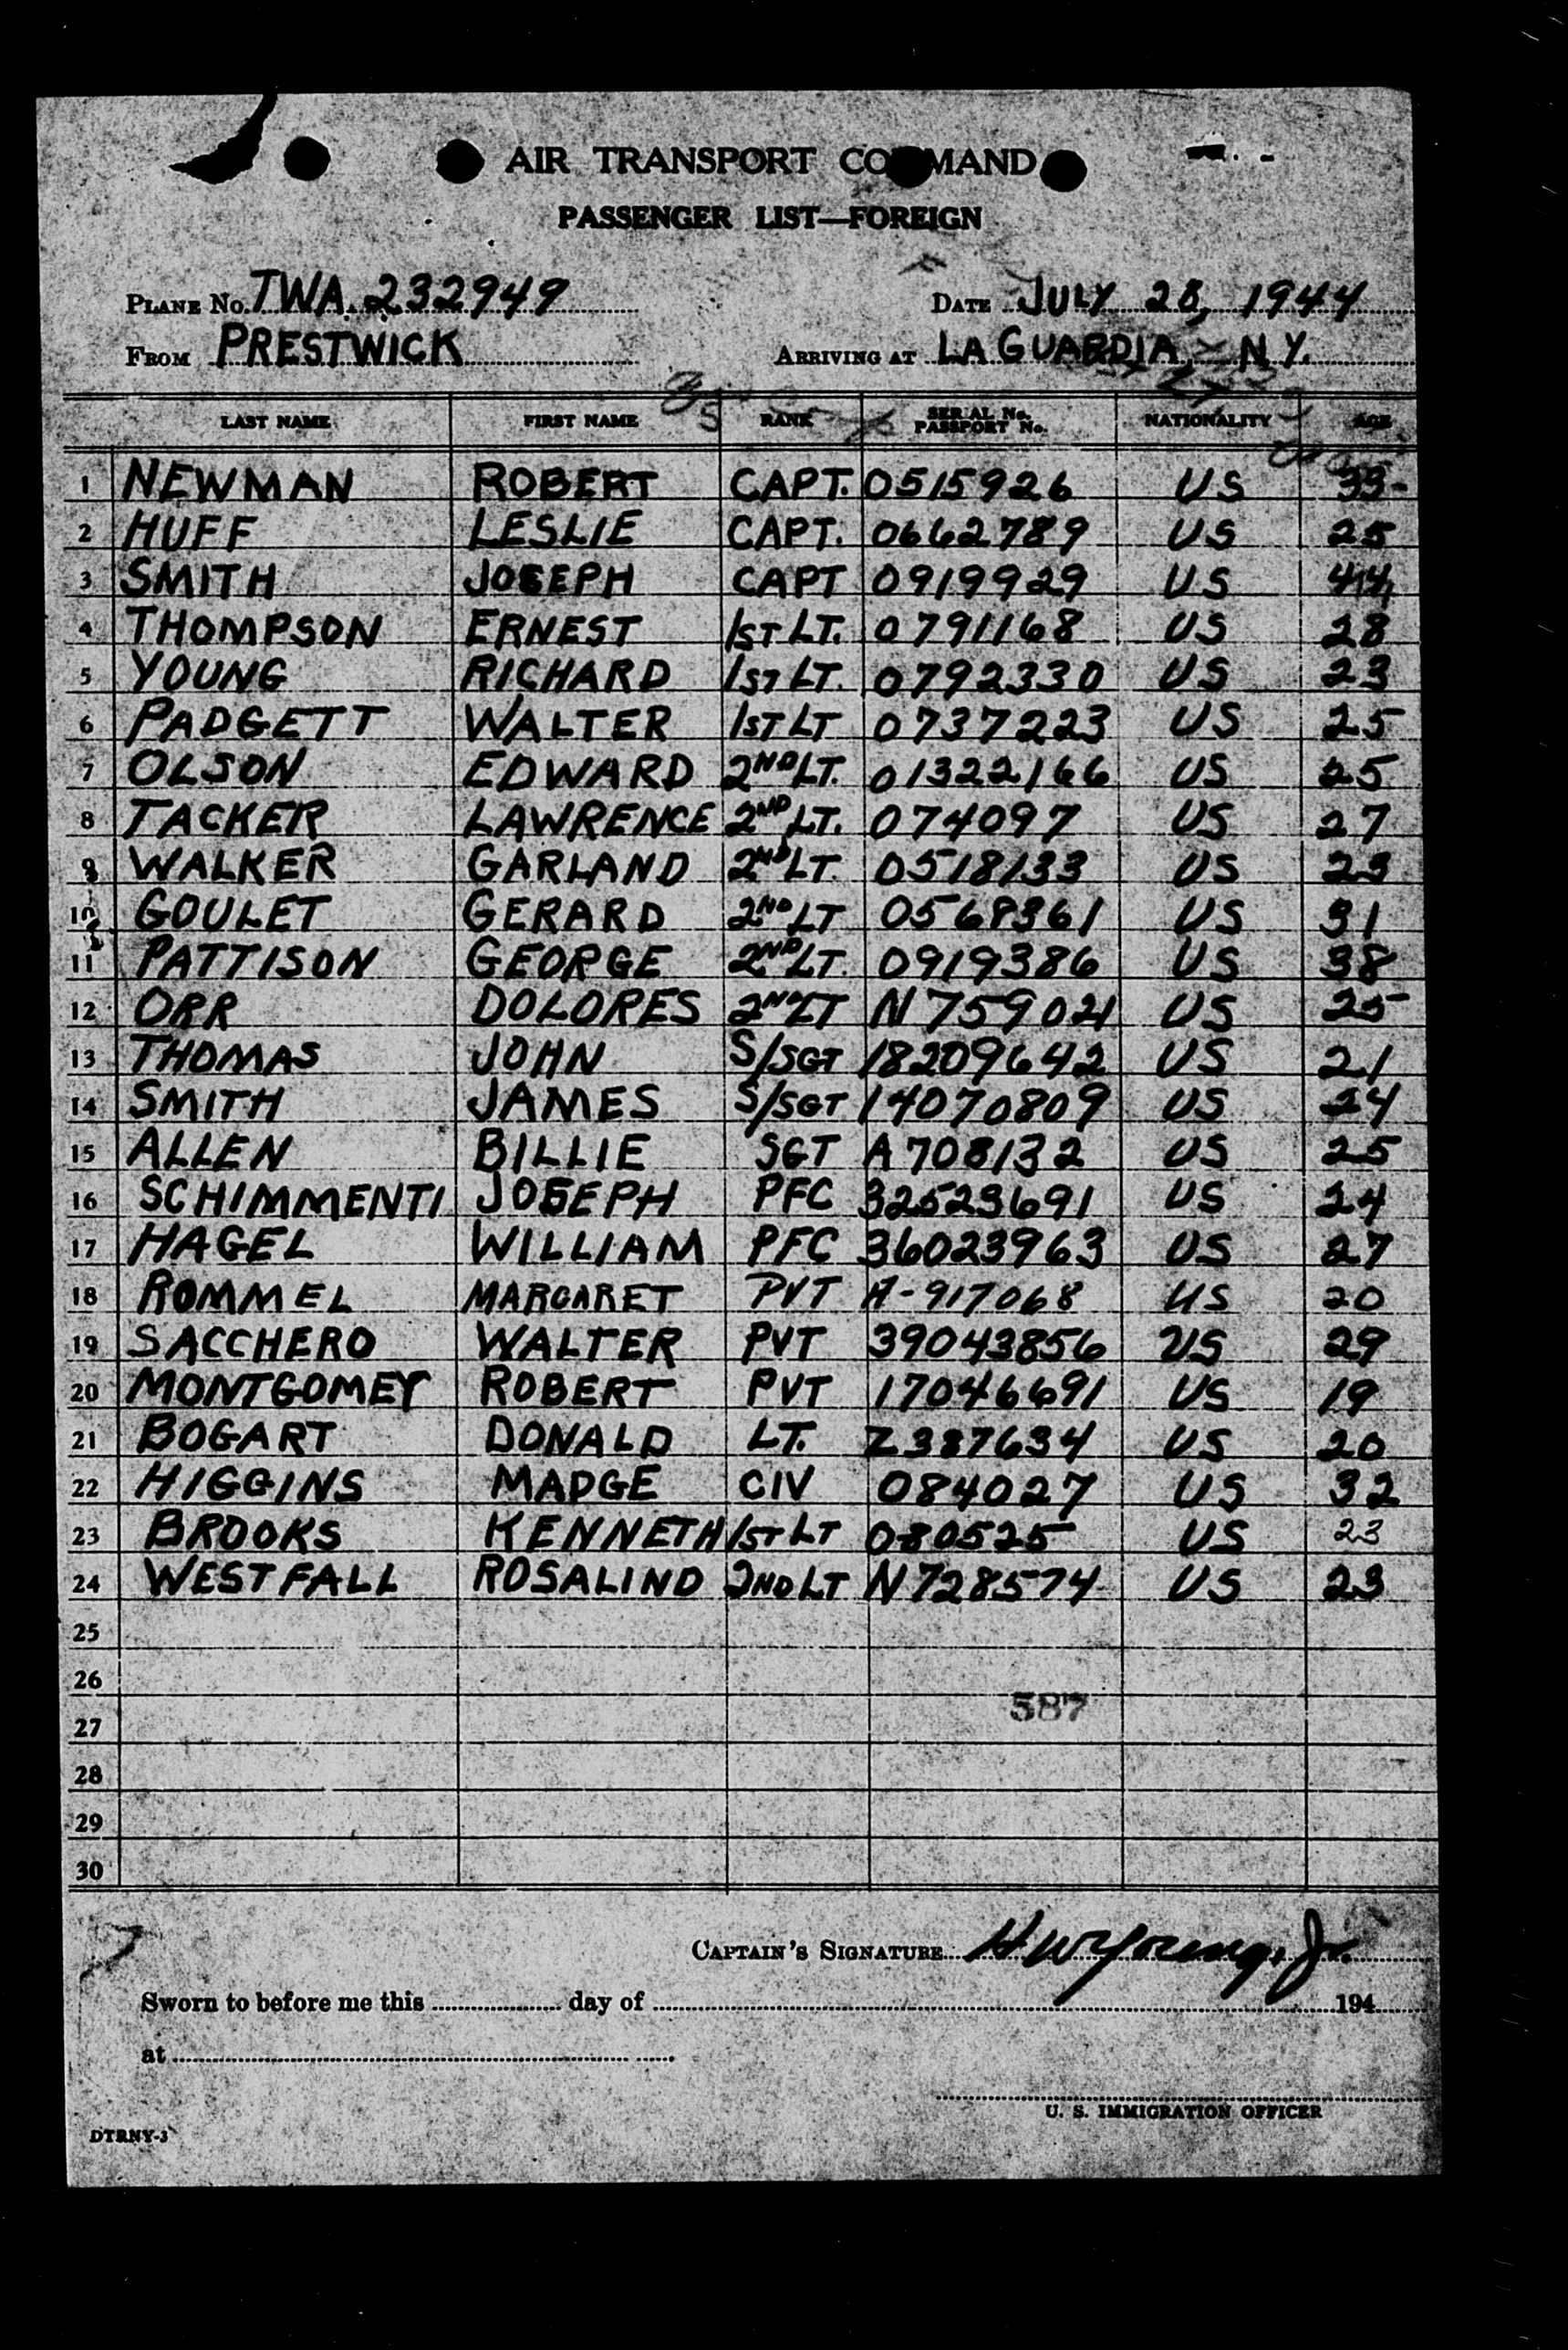 AIR TRANSPORT COMMAND
PASSENGER LIST—FOREIGN
PLANE No. TWA 232949 DATE JULY 28, 1944
FROM PRESTWICK ARRIVING AT LA GUARDIA - N.Y.
LAST NAME FIRST NAME RANK SERIAL No. PASSPORT No. NATIONALITY AGE
1 NEWMAN ROBERT CAPT. 0515926 US 33
2 HUFF LESLIE CAPT. 0662789 US 25
3 SMITH JOSEPH CAPT 0919929 US 44
4 THOMPSON ERNEST 1ST LT. 0791168 US 28
5 YOUNG RICHARD 1ST LT. 0792330 US 23
6 PADGETT WALTER 1ST LT 0737223 US 25
7 OLSON EDWARD 2ND LT. 01322166 US 25
8 TACKER LAWRENCE 2ND LT. 074097 US 27
9 WALKER GARLAND 2ND LT. 0518133 US 23
10 GOULET GERARD 2ND LT 0568361 US 31
11 PATTISON GEORGE 2ND LT. 0919386 US 38
12 ORR DOLORES 2ND LT N759021 US 25
13 THOMAS JOHN S/SGT 18209642 US 21
14 SMITH JAMES S/SGT 14070809 US 24
15 ALLEN BILLIE SGT A708132 US 25
16 SCHIMMENTI JOSEPH PFC 32523691 US 24
17 HAGEL WILLIAM PFC 36023963 US 27
18 ROMMEL MARGARET PVT A-917068 US 20
19 SACCHERO WALTER PVT 39043856 US 29
20 MONTGOMEY ROBERT PVT 17046691 US 19
21 BOGART DONALD LT. Z387634 US 20
22 HIGGINS MADGE CIV 084027 US 32
23 BROOKS KENNETH 1ST LT 080525 US 23
24 WESTFALL ROSALIND 2ND LT N728574 US 23
25
26
587
27
28
29
30
CAPTAIN'S SIGNATURE H W Young, Jr.
Sworn to before me this day of 194
at
U. S. IMMIGRATION OFFICER
DTRNY-3